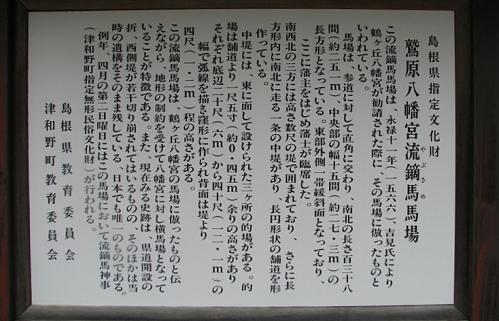 島根県指定文化財
鷲原八幡宮流鏑馬馬場
やぶさめ
この流鏑馬馬場は、永禄十一年(一五六八)、吉見氏により
鶴ヶ丘八幡宮が勧請された際に、その馬場に倣ったものと
いわれている。
馬場は、参道に対して直角に交わり、南北の長さ百三十八
間(約二五一m)、中央部の幅十五間(約二七・三m)の
長方形となっている。東部外側一帯緩斜面となっており、
ここに藩主をはじめ藩士が臨席した。
南西北の三方には高さ数尺の堤で囲まれており、さらに長
方形内に南北に走る一条の中堤があり、長円形状の舗道を形
作っている。
中堤には、東に面して設けられた三ヶ所の的場がある。的
場は舗道より一尺五寸(約0・四五m)余りの高さがあり
それぞれ底辺二十尺(六m)から四十尺(一二・一m)の
幅で弧線を描き窪形に作られ背面は堤より
四尺(一・二m)程の高さがある。
この流鏑馬馬場は、鶴ヶ丘八幡宮の馬場に倣ったものと伝
えながら、地形の制約を受けて八幡宮に対し横馬場となって
いることが特徴である。また、現在みる史跡は、県道開設の
折、西側堤が若干切り崩されてはいるものの、そのほかは当
時の遺構をそのまま残している、日本でも唯一のものである。
例年、四月の第二日曜日にはこの馬場において流鏑馬神事
(津和野町指定無形民俗文化財)が行われる。
島根県教育委員会
津和野町教育委員会